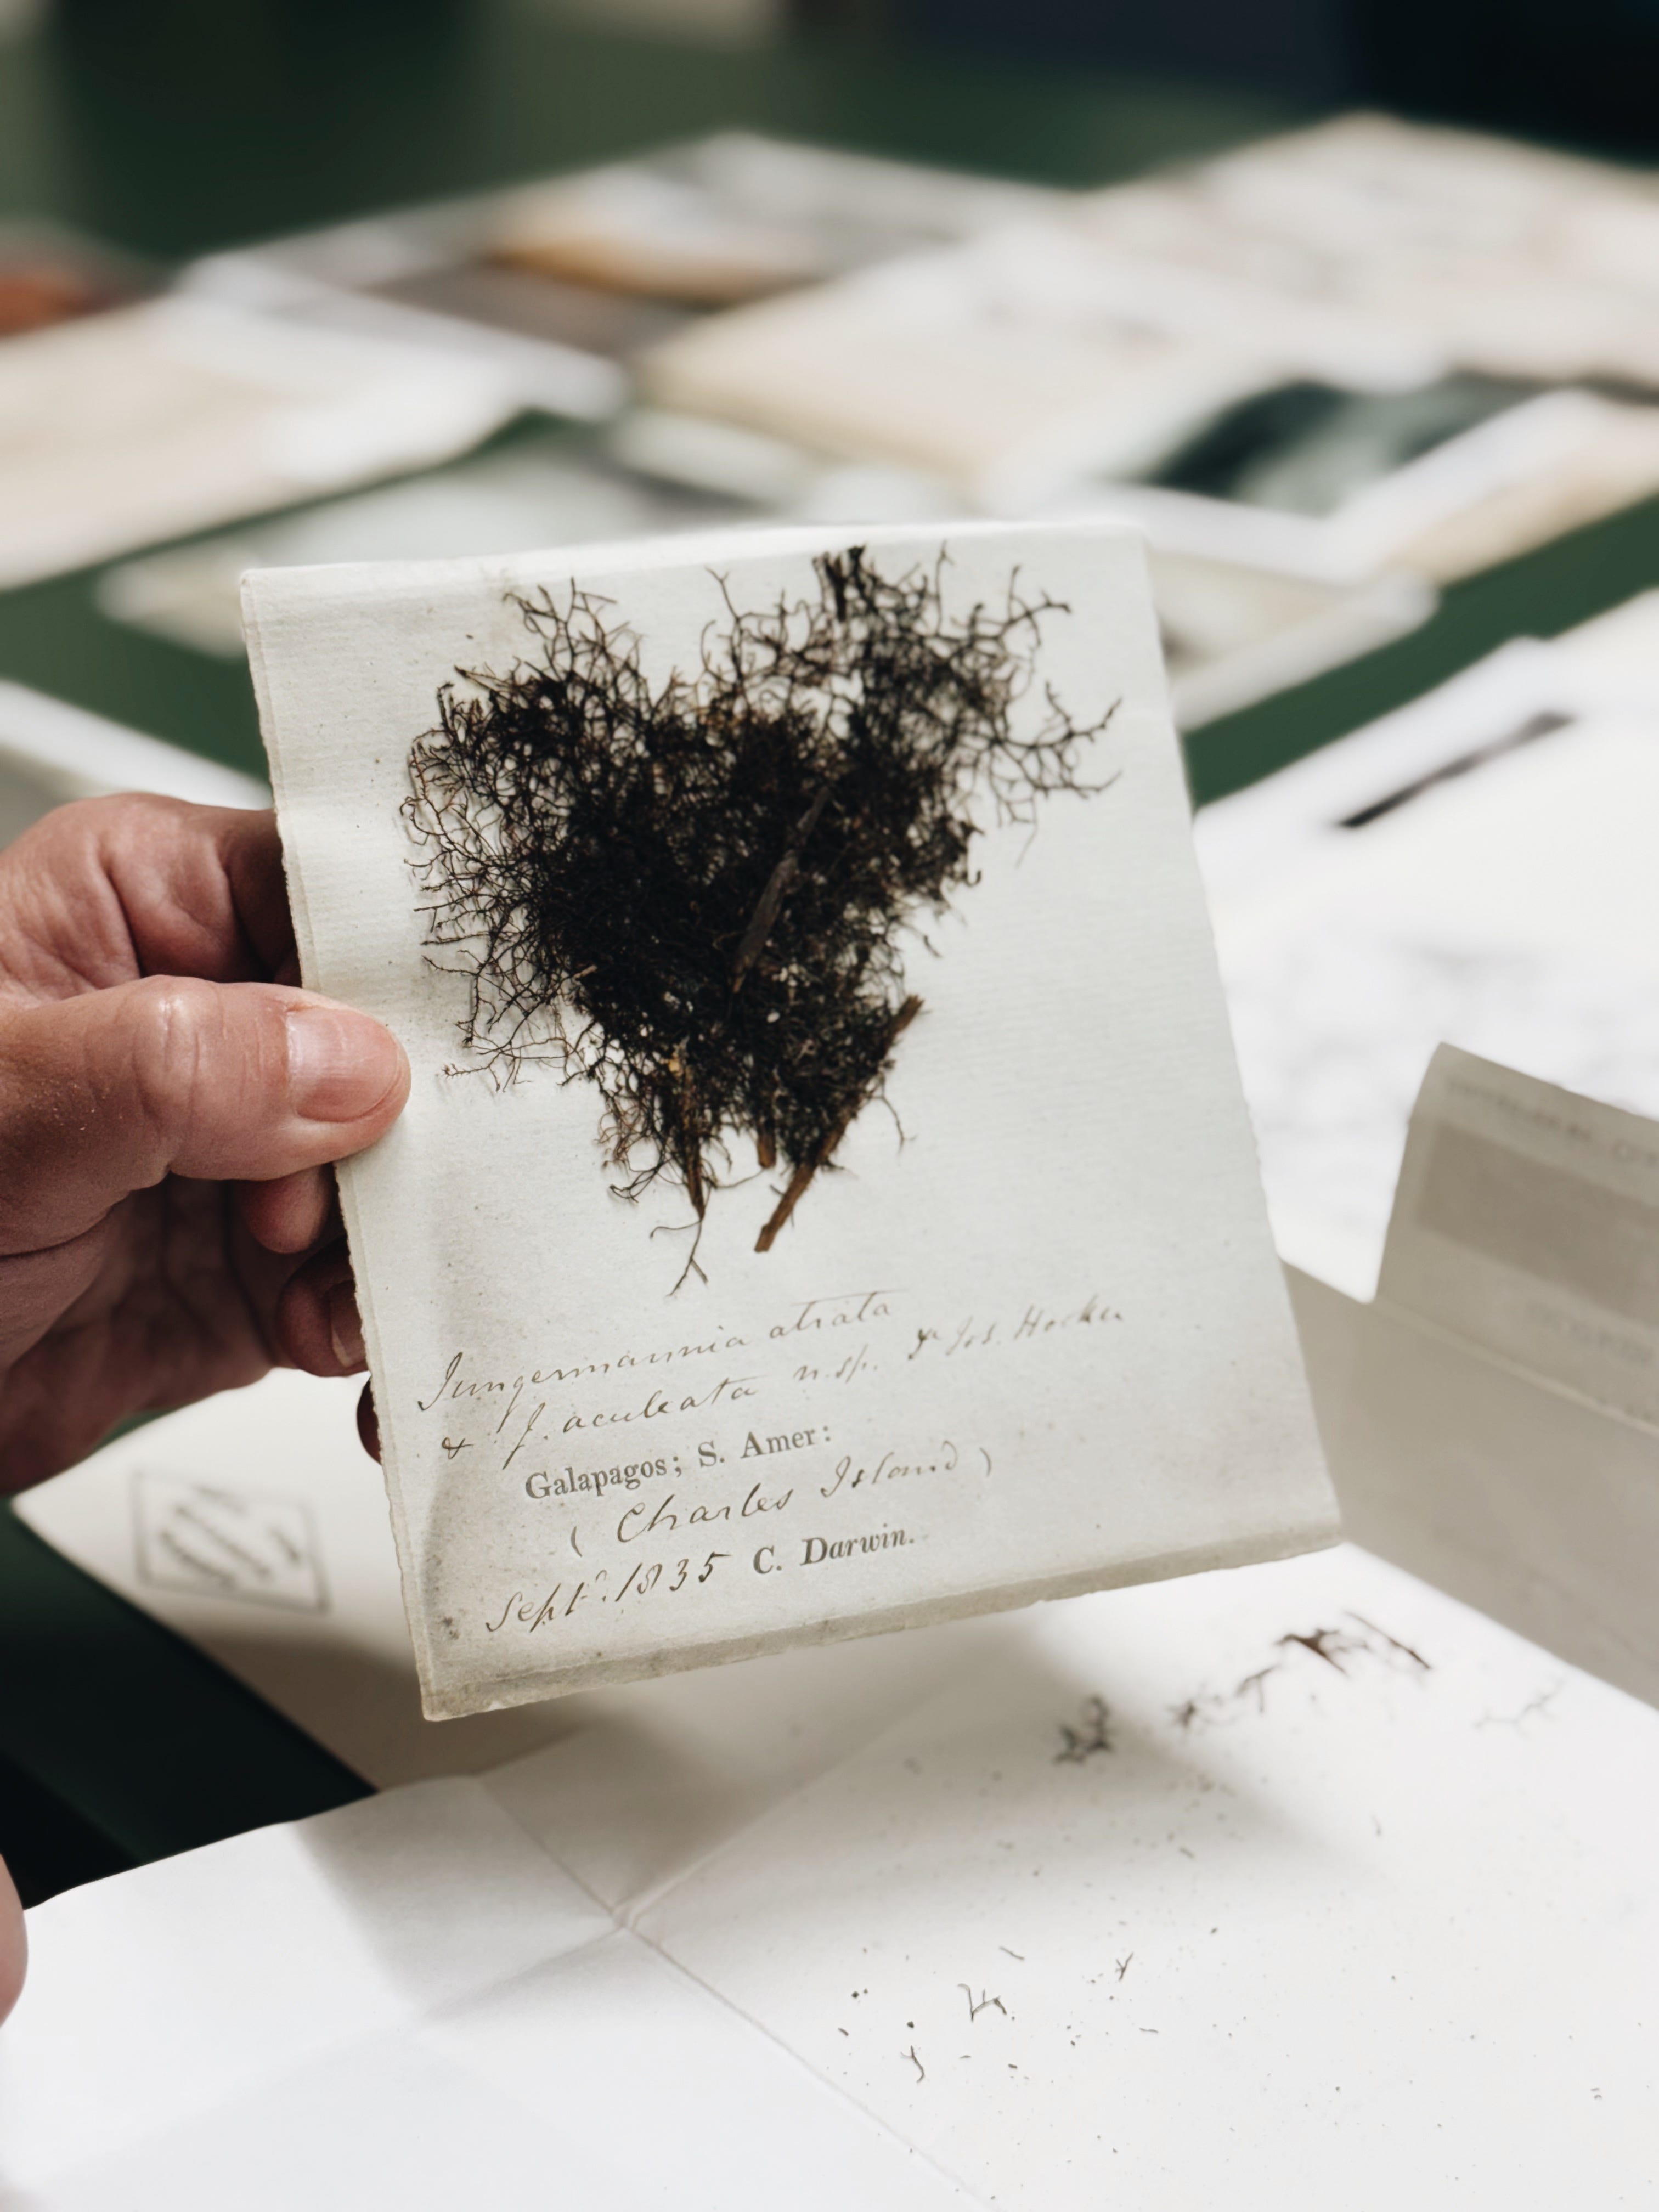 Jungermannia atrata
& J. aculeata n.sp. Jos. Hooker
Galapagos; S. Amer:
( Charles Island )
Septr. 1835 C. Darwin.